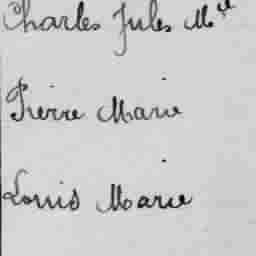 Charles Jules M^el
Pierre Marie
Louis Marie